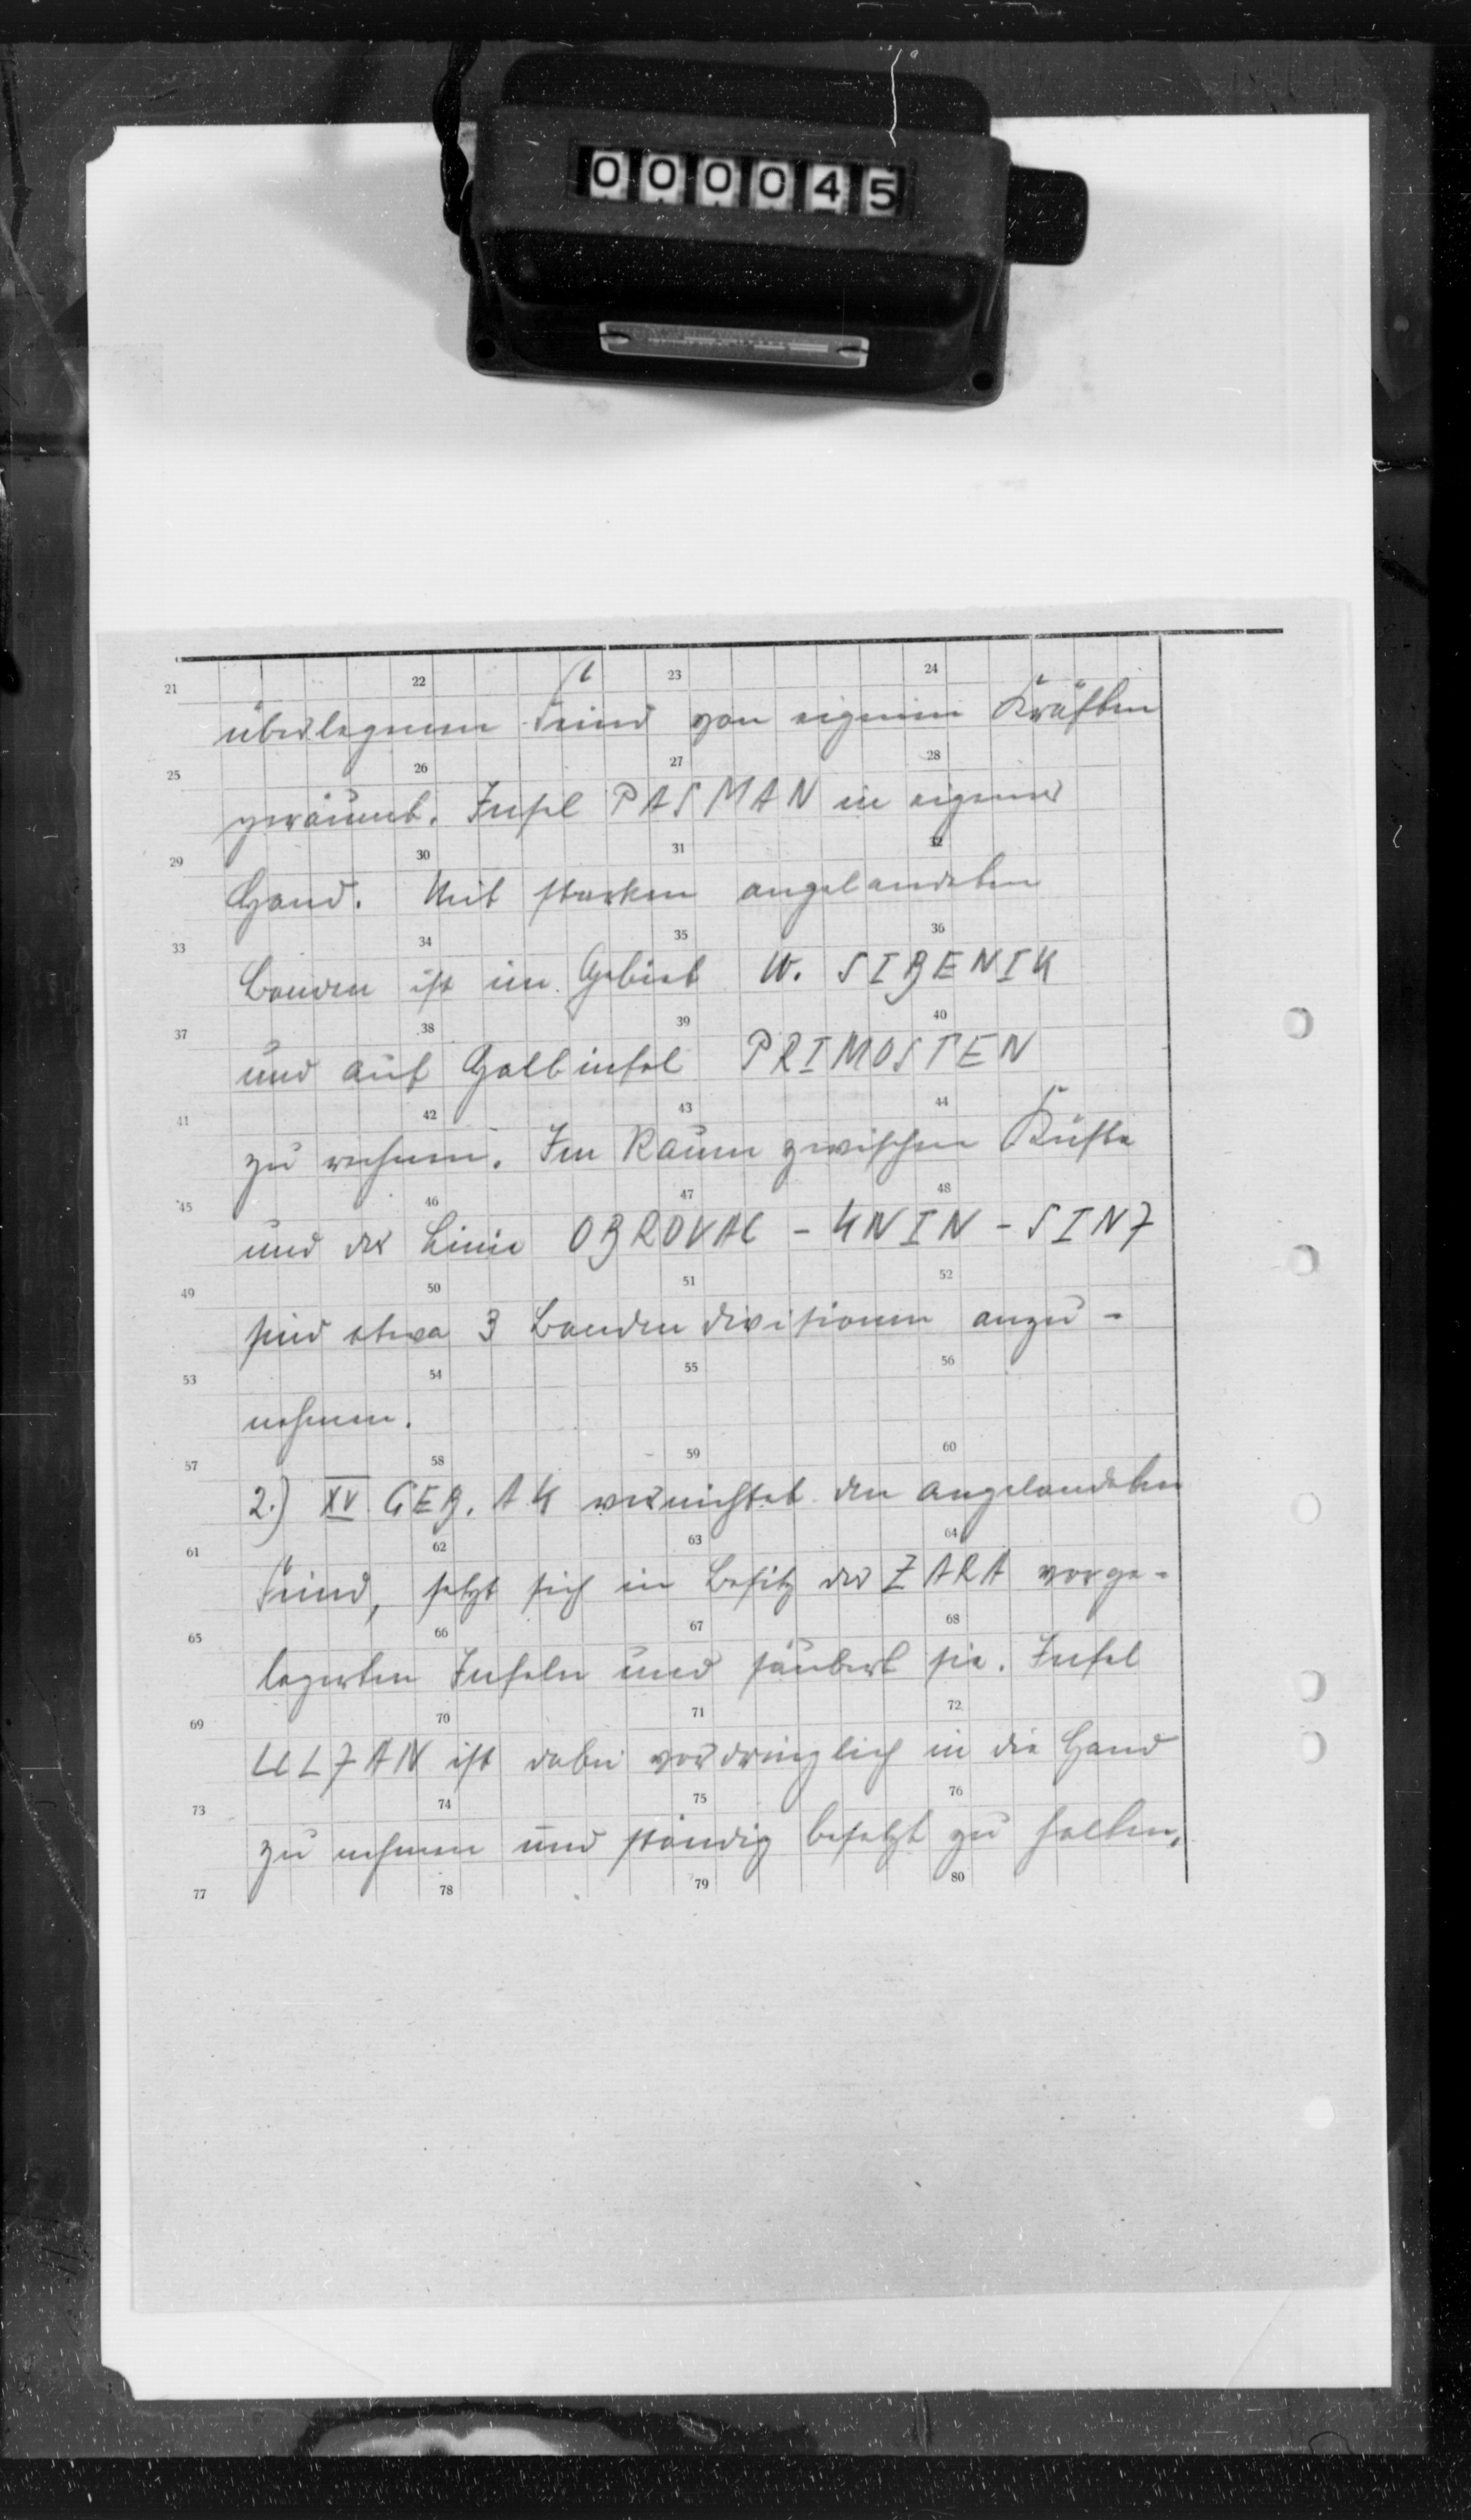 000045
21 22 23 24
überlegenem Feind von eigenen Kräften
25 26 27 28
geräumt. Insel PASMAN in eigener
29 30 31 32
Hand. Mit starken angelandeten
33 34 35 36
Banden ist im Gebiet W. SIBENIK
37 38 39 40
und auf Halbinsel PRIMOSTEN
41 42 43 44
zu rechnen. Im Raum zwischen Küste
45 46 47 48
und der Linie OBROVAC - KNIN - SINJ
49 50 51 52
sind etwa 3 Bandendivisionen anzu-
53 54 55 56
nehmen.
57 58 59 60
2.) XV. GEB. AK vernichtet den angelandeten
61 62 63 64
Feind, setzt sich in Besitz der ZARA vorge-
65 66 67 68
lagerten Inseln und säubert sie. Insel
69 70 71 72
ULJAN ist dabei vordringlich in die Hand
73 74 75 76
zu nehmen und ständig besetzt zu halten,
77 78 79 80